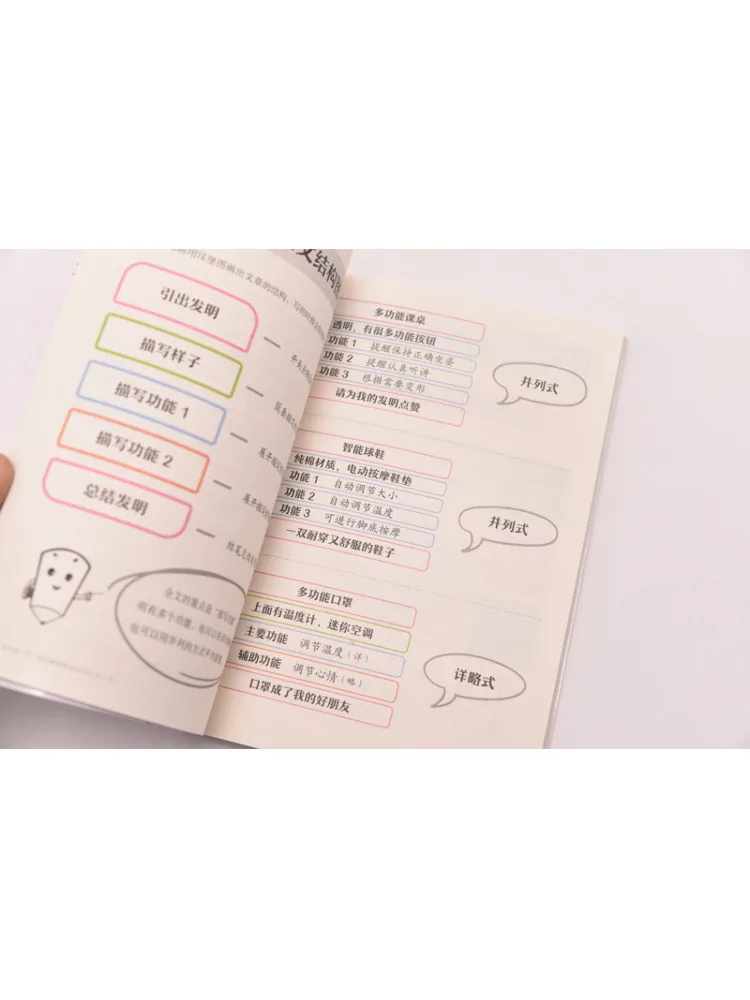 文结构
用汉堡图画出文章的结构
引出发明
描写样子
描写功能 1
描写功能 2
总结发明
全文的重点是“描写功能
明有多个功能，你可以
也可以用并列的方式平均
多功能课桌
透明，有很多功能按钮
功能 1 提醒保持正确坐姿
功能 2 提醒认真听讲
功能 3 根据需要变形
请为我的发明点赞
并列式
智能球鞋
纯棉材质，电动按摩鞋垫
功能 1 自动调节大小
功能 2 自动调节温度
功能 3 可进行脚底按摩
一双耐穿又舒服的鞋子
并列式
多功能口罩
上面有温度计、迷你空调
主要功能 调节温度（详）
辅助功能 调节心情（略）
口罩成了我的好朋友
详略式